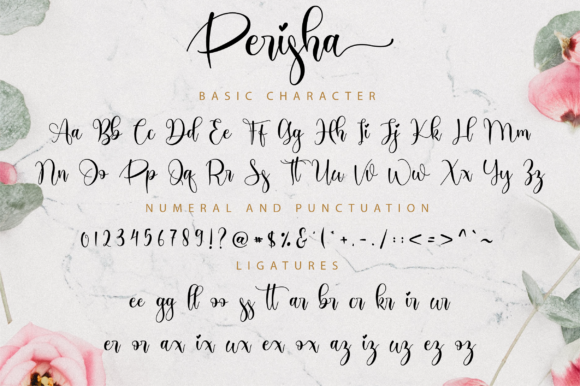 Perisha
BASIC CHARACTER
Aa Bb Cc Dd Ee Ff Gg Hh Ii Jj Kk Ll Mm
Nn Oo Pp Qq Rr Ss Tt Uu Vv Ww Xx Yy Zz
NUMERAL AND PUNCTUATION
0123456789!?@*#$%&'(*+,-./:;<=>^`~
LIGATURES
ee gg ll oo ss tt ar br cr kr ir ur
er or ax ix ux ex ox az iz uz ez oz